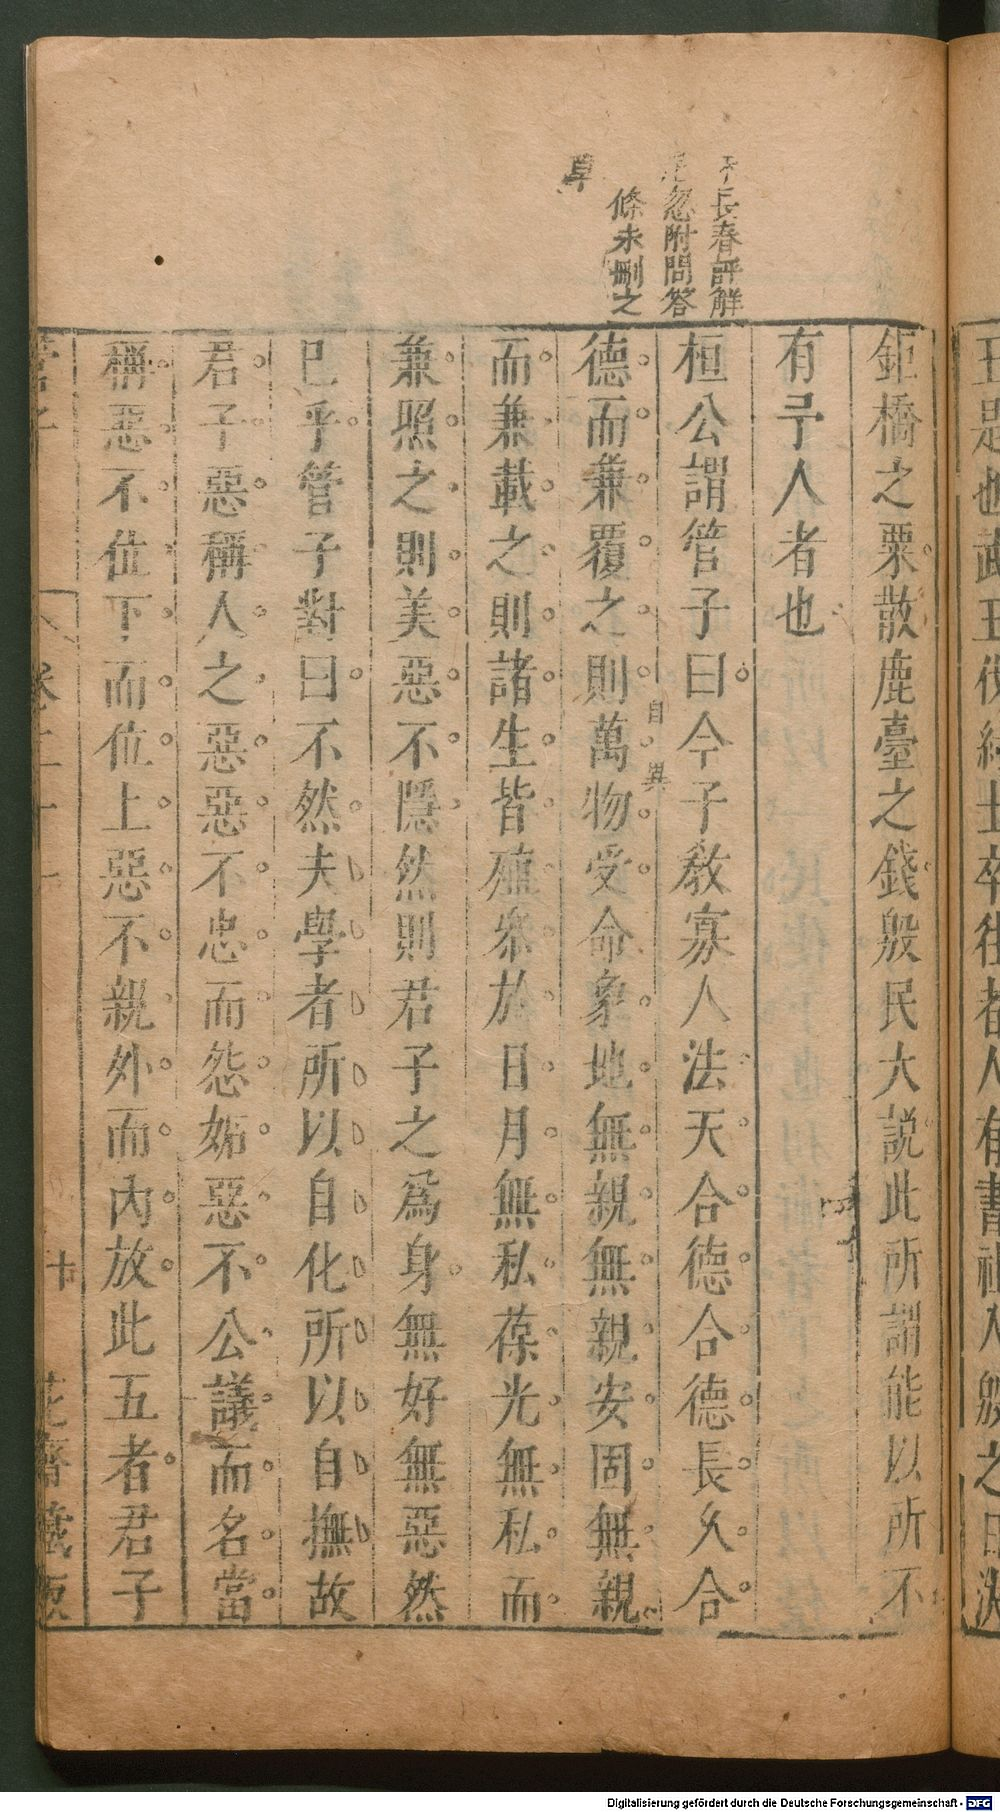 長春評解
忽附問答
條未刪之
草
鉅橋之粟散鹿臺之錢殷民大說此所謂能以所不
有予人者也
桓公謂管子曰今子敎寡人法天合德合德長久合
德而兼覆之則萬物受命象地無親無親安固無親
而兼載之則諸生皆殖參於日月無私葆光無私而
兼照之則美惡不隱然則君子之爲身無好無惡然
已乎管子對曰不然夫學者所以自化所以自撫故
君子惡稱人之惡惡不忠而怨妬惡不公議而名當
稱惡不位下而位上惡不親外而內放此五者君子
Digitalisierung gefördert durch die Deutsche Forschungsgemeinschaft - DFG